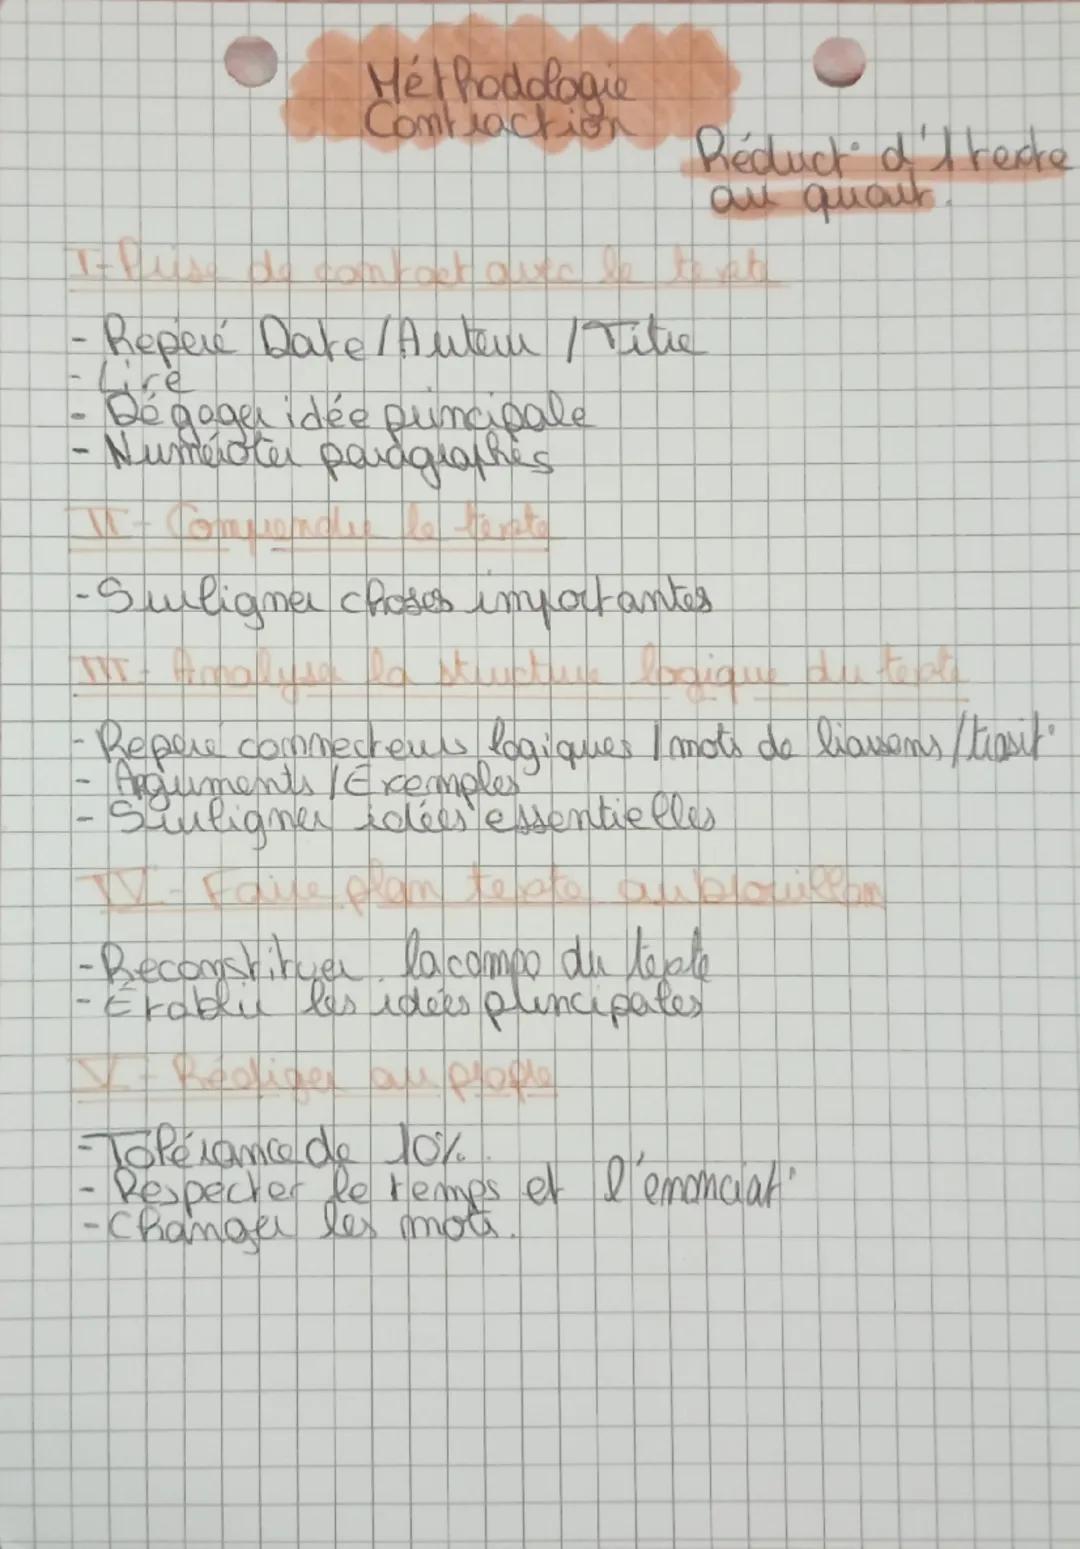 Méthodologie
Contraction
Réduct° d'1 texte
au quart.
I- Prise de contact avec le texte
- Reperé Date / Auteur / Titre
- Lire
- Dégager idée principale
- Numéroter paragraphes
II- Comprendre le texte
- Surligner choses importantes
III- Analyser la structure logique du texte
- Reperé connecteurs logiques / mots de liaisons / trasit°
- Arguments / Exemples
- Surligner idées essentielles
IV- Faire plan texte au brouillon
- Reconstituer la compo du texte
- Établir les idées principales
V- Rédiger au propre
- Tolérance de 10%.
- Respecter le temps et l'énonciat°
- Changer les mots.